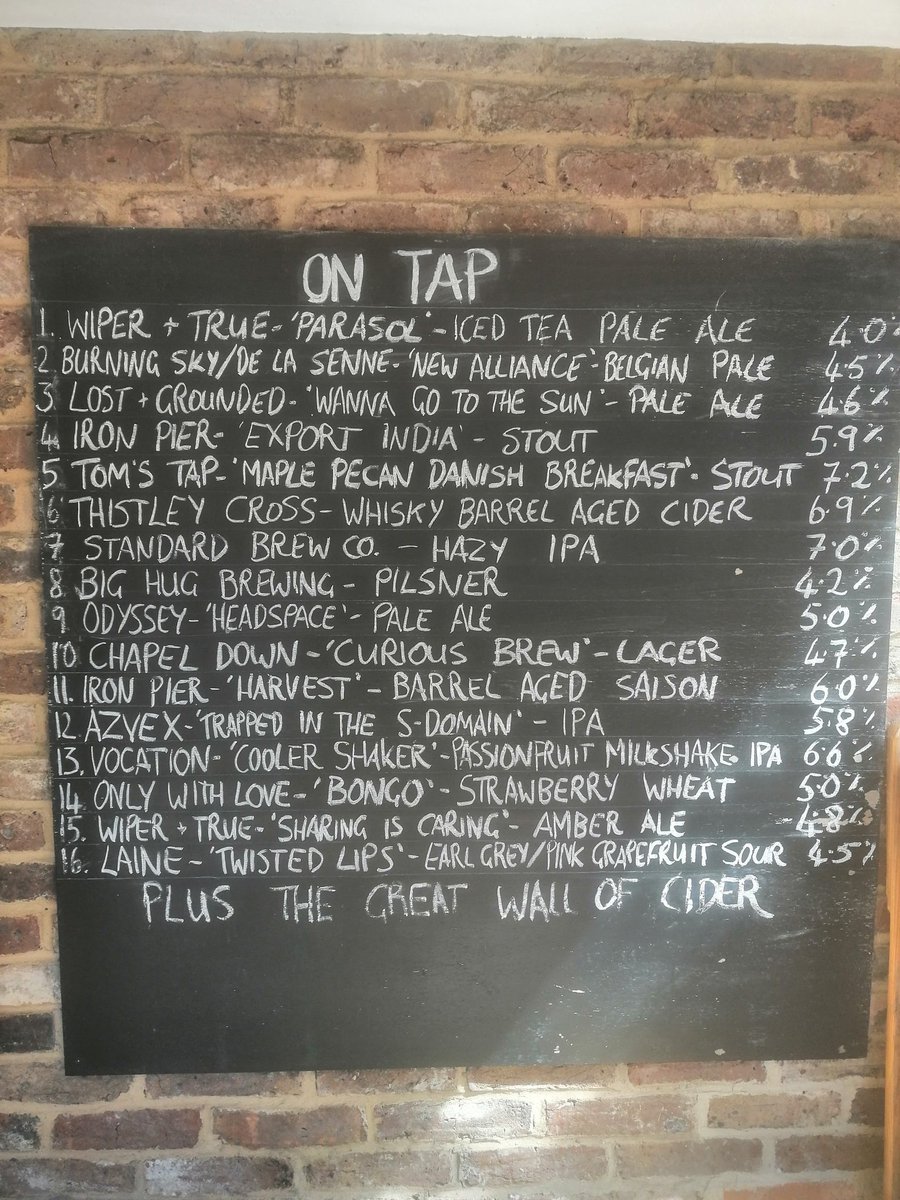 ON TAP
1. WIPER + TRUE - 'PARASOL' - ICED TEA PALE ALE 4.0%
2. BURNING SKY/DE LA SENNE - 'NEW ALLIANCE' - BELGIAN PALE 4.5%
3. LOST + GROUNDED - 'WANNA GO TO THE SUN' - PALE ALE 4.6%
4. IRON PIER - 'EXPORT INDIA' - STOUT 5.9%
5. TOM'S TAP - 'MAPLE PECAN DANISH BREAKFAST' - STOUT 7.2%
6 THISTLEY CROSS - WHISKY BARREL AGED CIDER 6.9%
7 STANDARD BREW CO. - HAZY IPA 7.0%
8 BIG HUG BREWING - PILSNER 4.2%
9 ODYSSEY - 'HEADSPACE' - PALE ALE 5.0%
10 CHAPEL DOWN - 'CURIOUS BREW' - LAGER 4.7%
11. IRON PIER - 'HARVEST' - BARREL AGED SAISON 6.0%
12 AZVEX - 'TRAPPED IN THE S-DOMAIN' - IPA 5.8%
13. VOCATION - 'COOLER SHAKER' - PASSIONFRUIT MILKSHAKE IPA 6.6%
14 ONLY WITH LOVE - 'BONGO' - STRAWBERRY WHEAT 5.0%
15. WIPER + TRUE - 'SHARING IS CARING' - AMBER ALE 4.8%
16. LAINE - 'TWISTED LIPS' - EARL GREY/PINK GRAPEFRUIT SOUR 4.5%
PLUS THE GREAT WALL OF CIDER